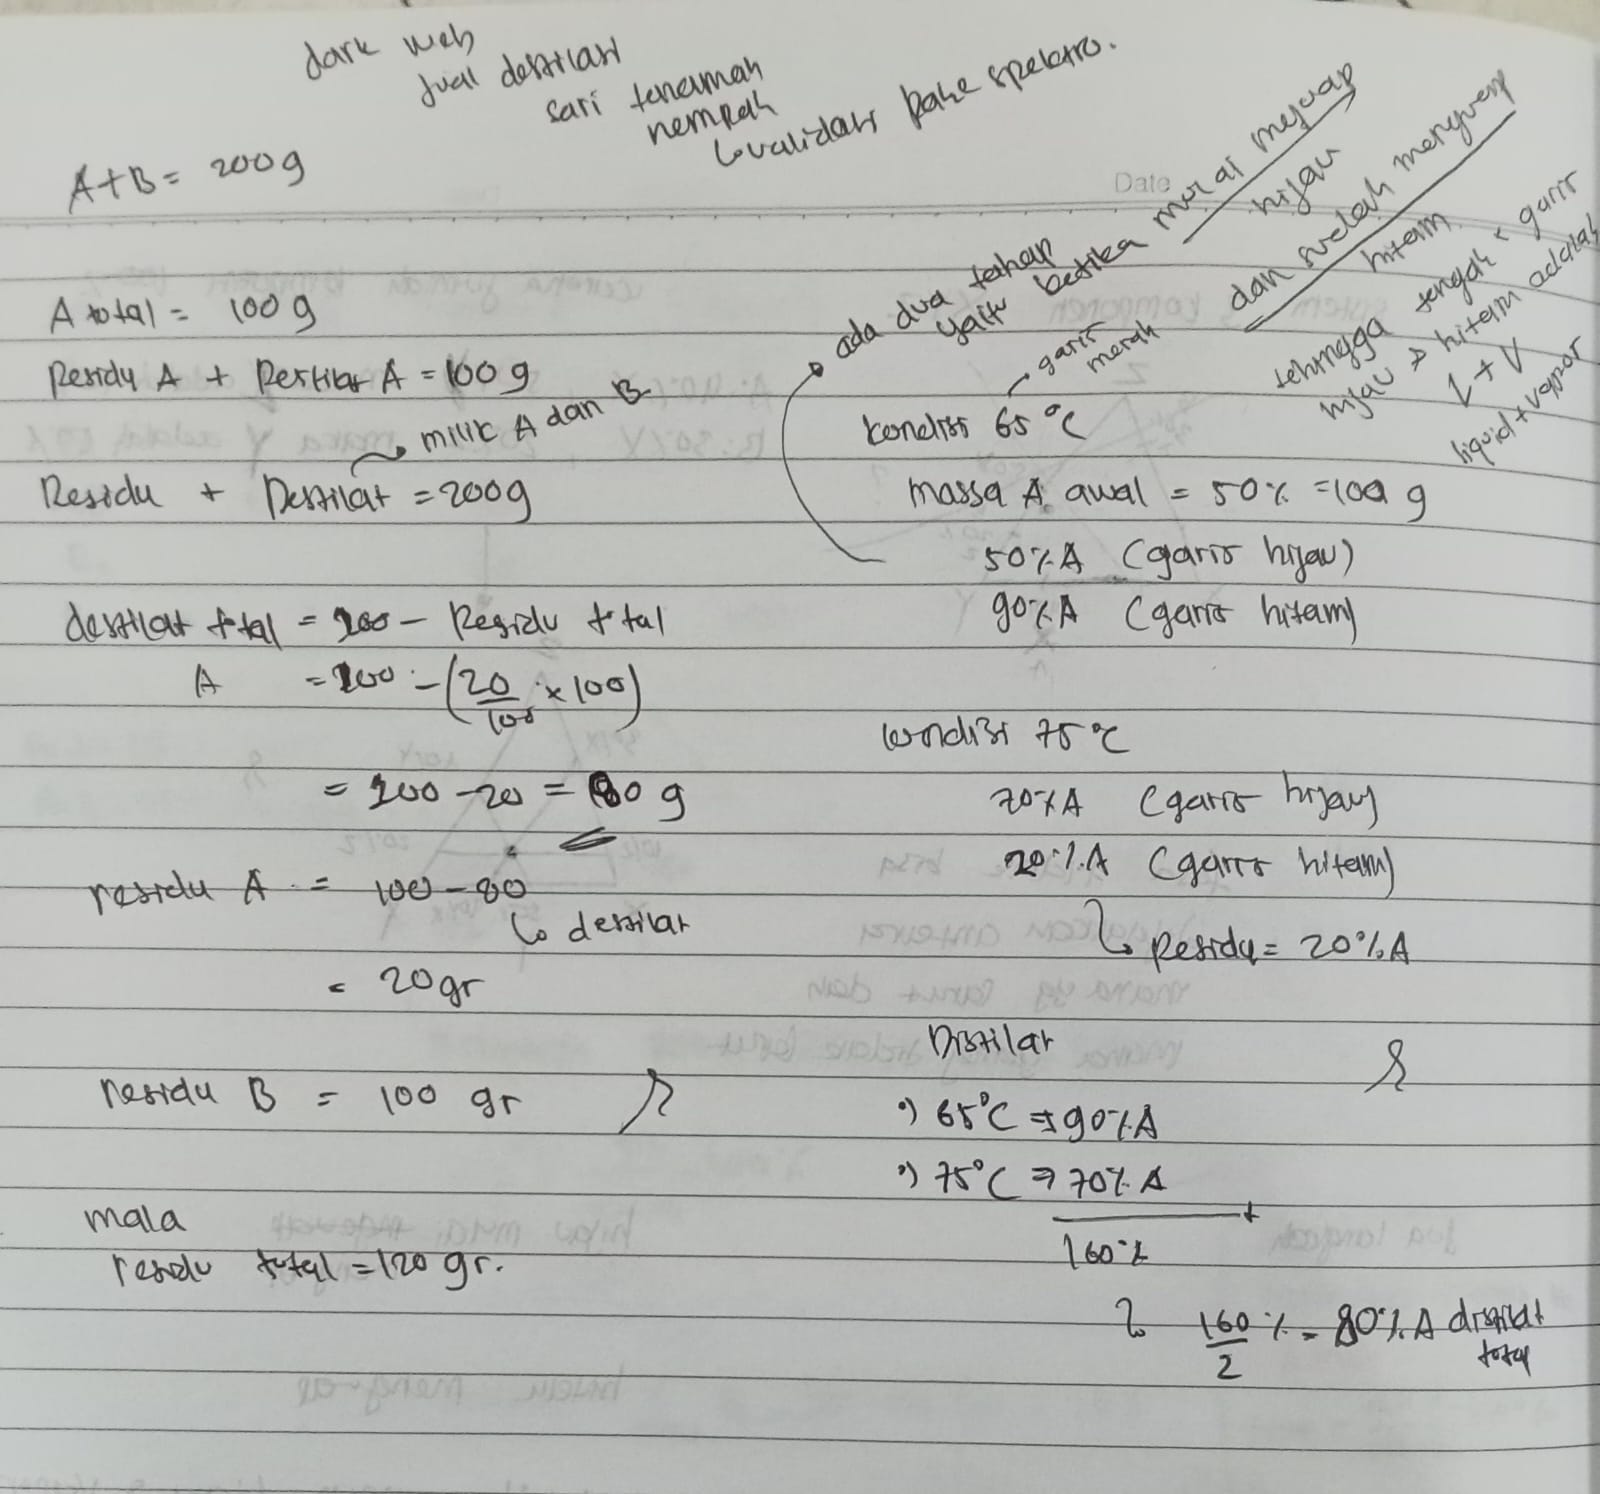 dark web
jual destilasi
sari tanaman
rempah
↳ validasi pake spektro.
A+B = 200g
Date
A total = 100 g
Residu A + Destilat A = 100 g
↝ milik A dan B
Residu + Destilat = 200g
destilat total = 200 - Residu total
A = 100 - (20/100 × 100)
= 100 - 20 = 80 g
residu A = 100 - 80
↳ destilat
= 20gr
residu B = 100 gr
maka
residu total = 120 gr.
ada dua tahap
yaitu ketika mulai menguap
hijau
dan setelah menguap
hitam
sehingga tengah < garis
hijau > hitam adalah
L + V
liquid + vapor
garis
merah
kondisi 65 °C
massa A awal = 50% = 100 g
50% A (garis hijau)
90% A (garis hitam)
kondisi 75 °C
70% A (garis hijau)
20% A (garis hitam)
↳ Residu = 20% A
Distilat
•) 65°C ⇒ 90% A
•) 75°C ⇒ 70% A
+
160%
↳ 160/2 % = 80% A distilat
total